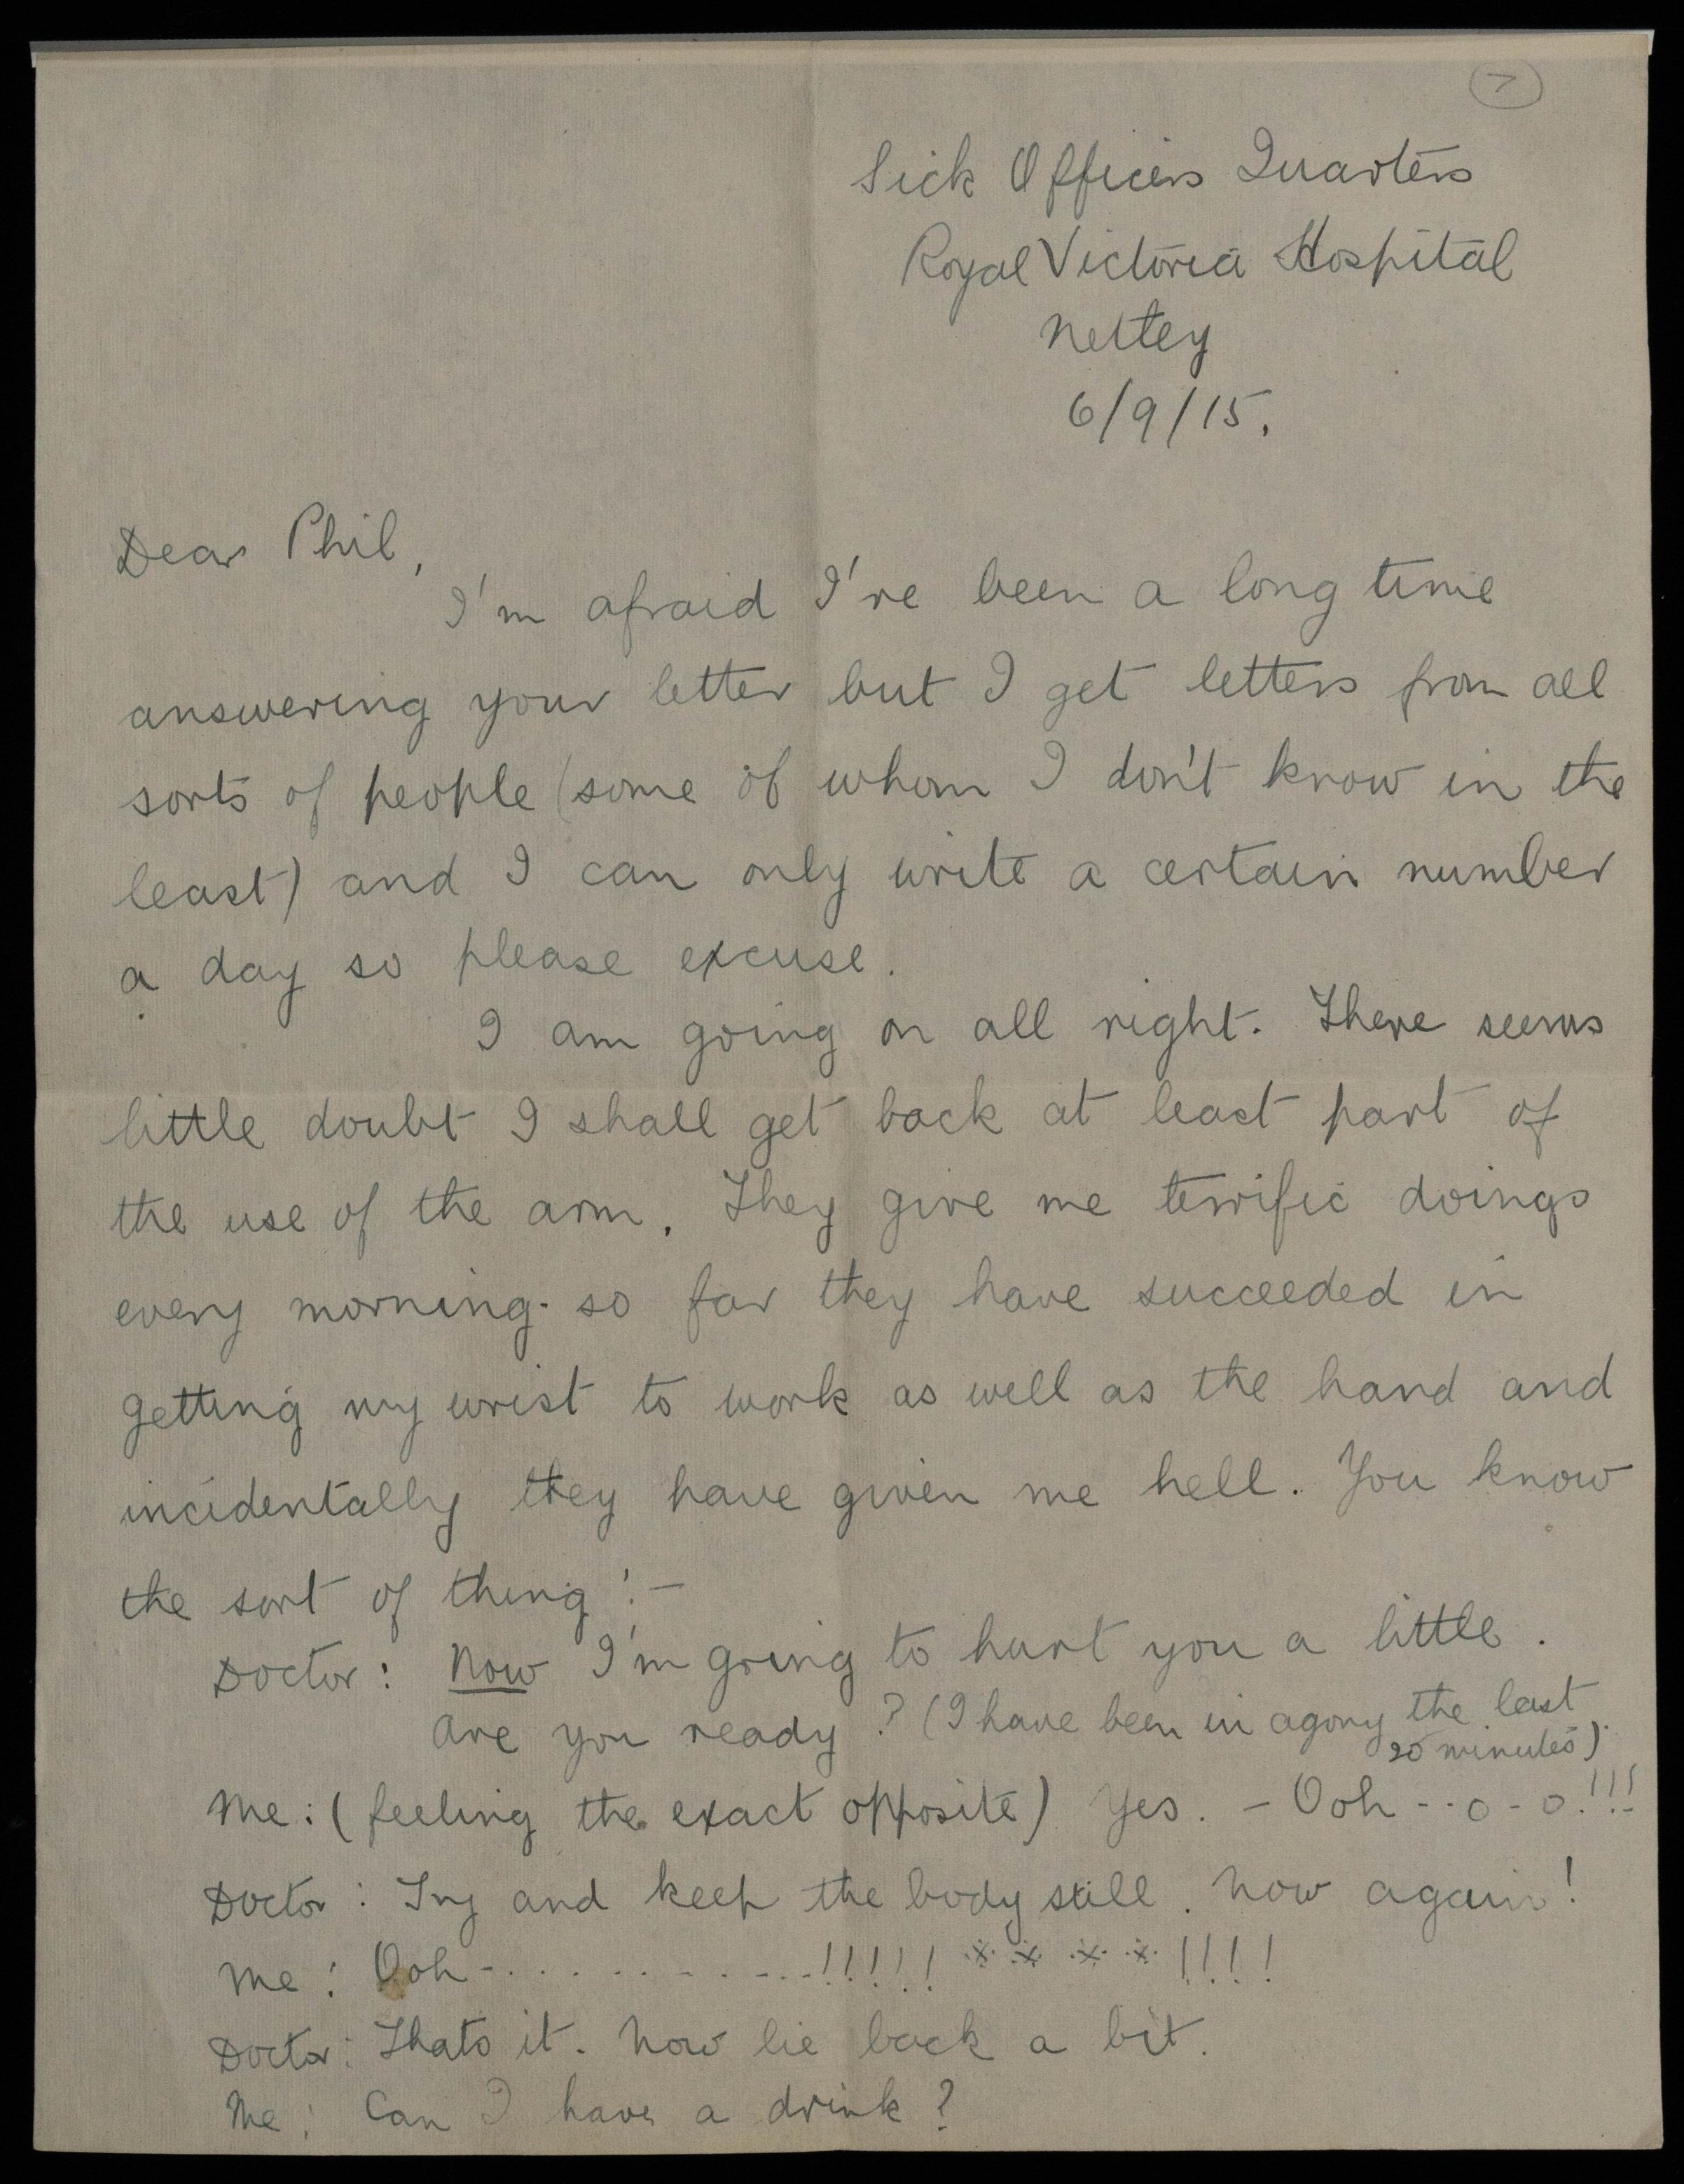 7
Sick Officers Quarters
Royal Victoria Hospital
Netley
6/9/15.
Dear Phil,
I'm afraid I've been a long time
answering your letter but I get letters from all
sorts of people (some of whom I don't know in the
least) and I can only write a certain number
a day so please excuse.
I am going on all right. There seems
little doubt I shall get back at least part of
the use of the arm. They give me terrific doings
every morning. so far they have succeeded in
getting my wrist to work as well as the hand and
incidentally they have given me hell. You know
the sort of thing :-
Doctor: Now I'm going to hurt you a little.
Are you ready? (I have been in agony the last
20 minutes).
Me: (feeling the exact opposite) Yes. - Ooh - - o - o.!!!
Doctor: Try and keep the body still. Now again!
Me: Ooh - . . . . . - . . . - !!!!! * * * * !!!!
Doctor: Thats it. Now lie back a bit.
Me: Can I have a drink?